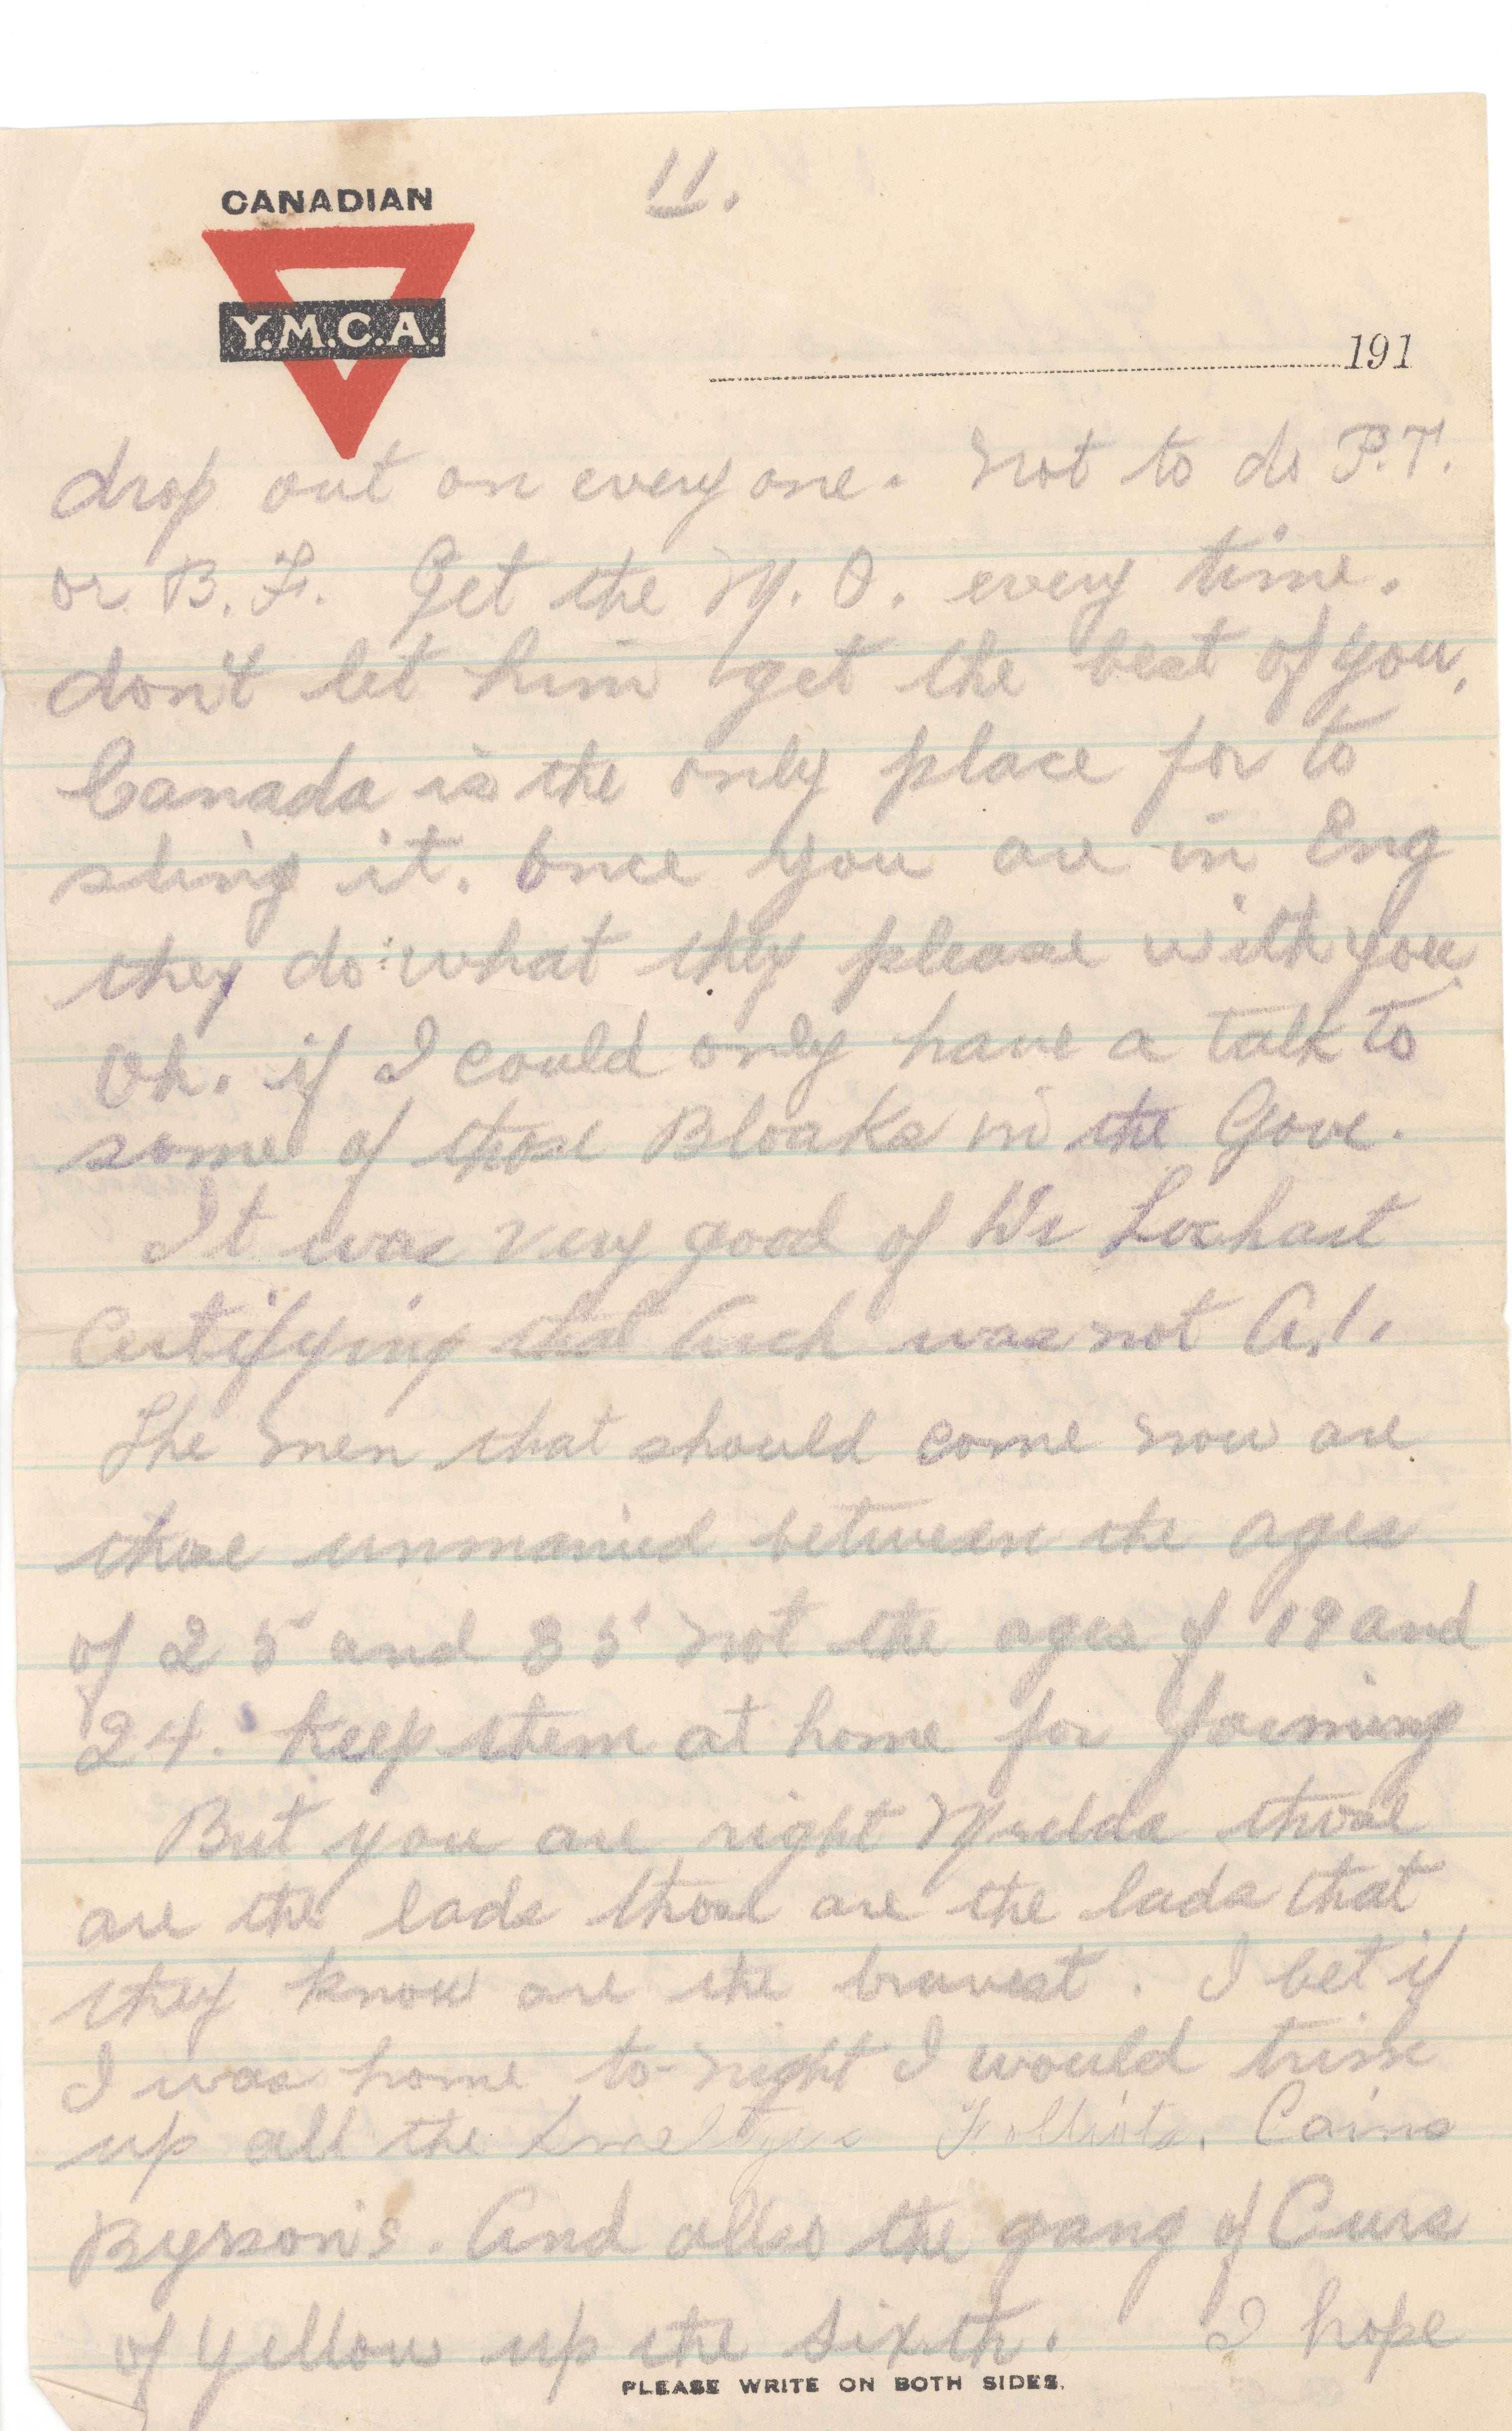 CANADIAN
Y.M.C.A.
11.
191
drop out on every one. not to do P.T.
or B. F. Get the M. O. every time.
don't let him get the best of you,
Canada is the only place for to
sling it. Once you are in Eng
they do what they please with you
Oh. if I could only have a talk to
some of those Bloaks in the Gove.
It was very good of Dr Lochart
Certifying that Arch was not A.1.
The men that should come now are
those unmarried between the ages
of 25 and 35 not the ages of 19 and
24. Keep them at home for farming
But you are right those
are the lads those are the lads that
they know are the bravest. I bet if
I was home to-night I would trim
up all the Folliots. Cains
Bryson's. And allso the gang of Curs
of yellow up the sixth. I hope
PLEASE WRITE ON BOTH SIDES.